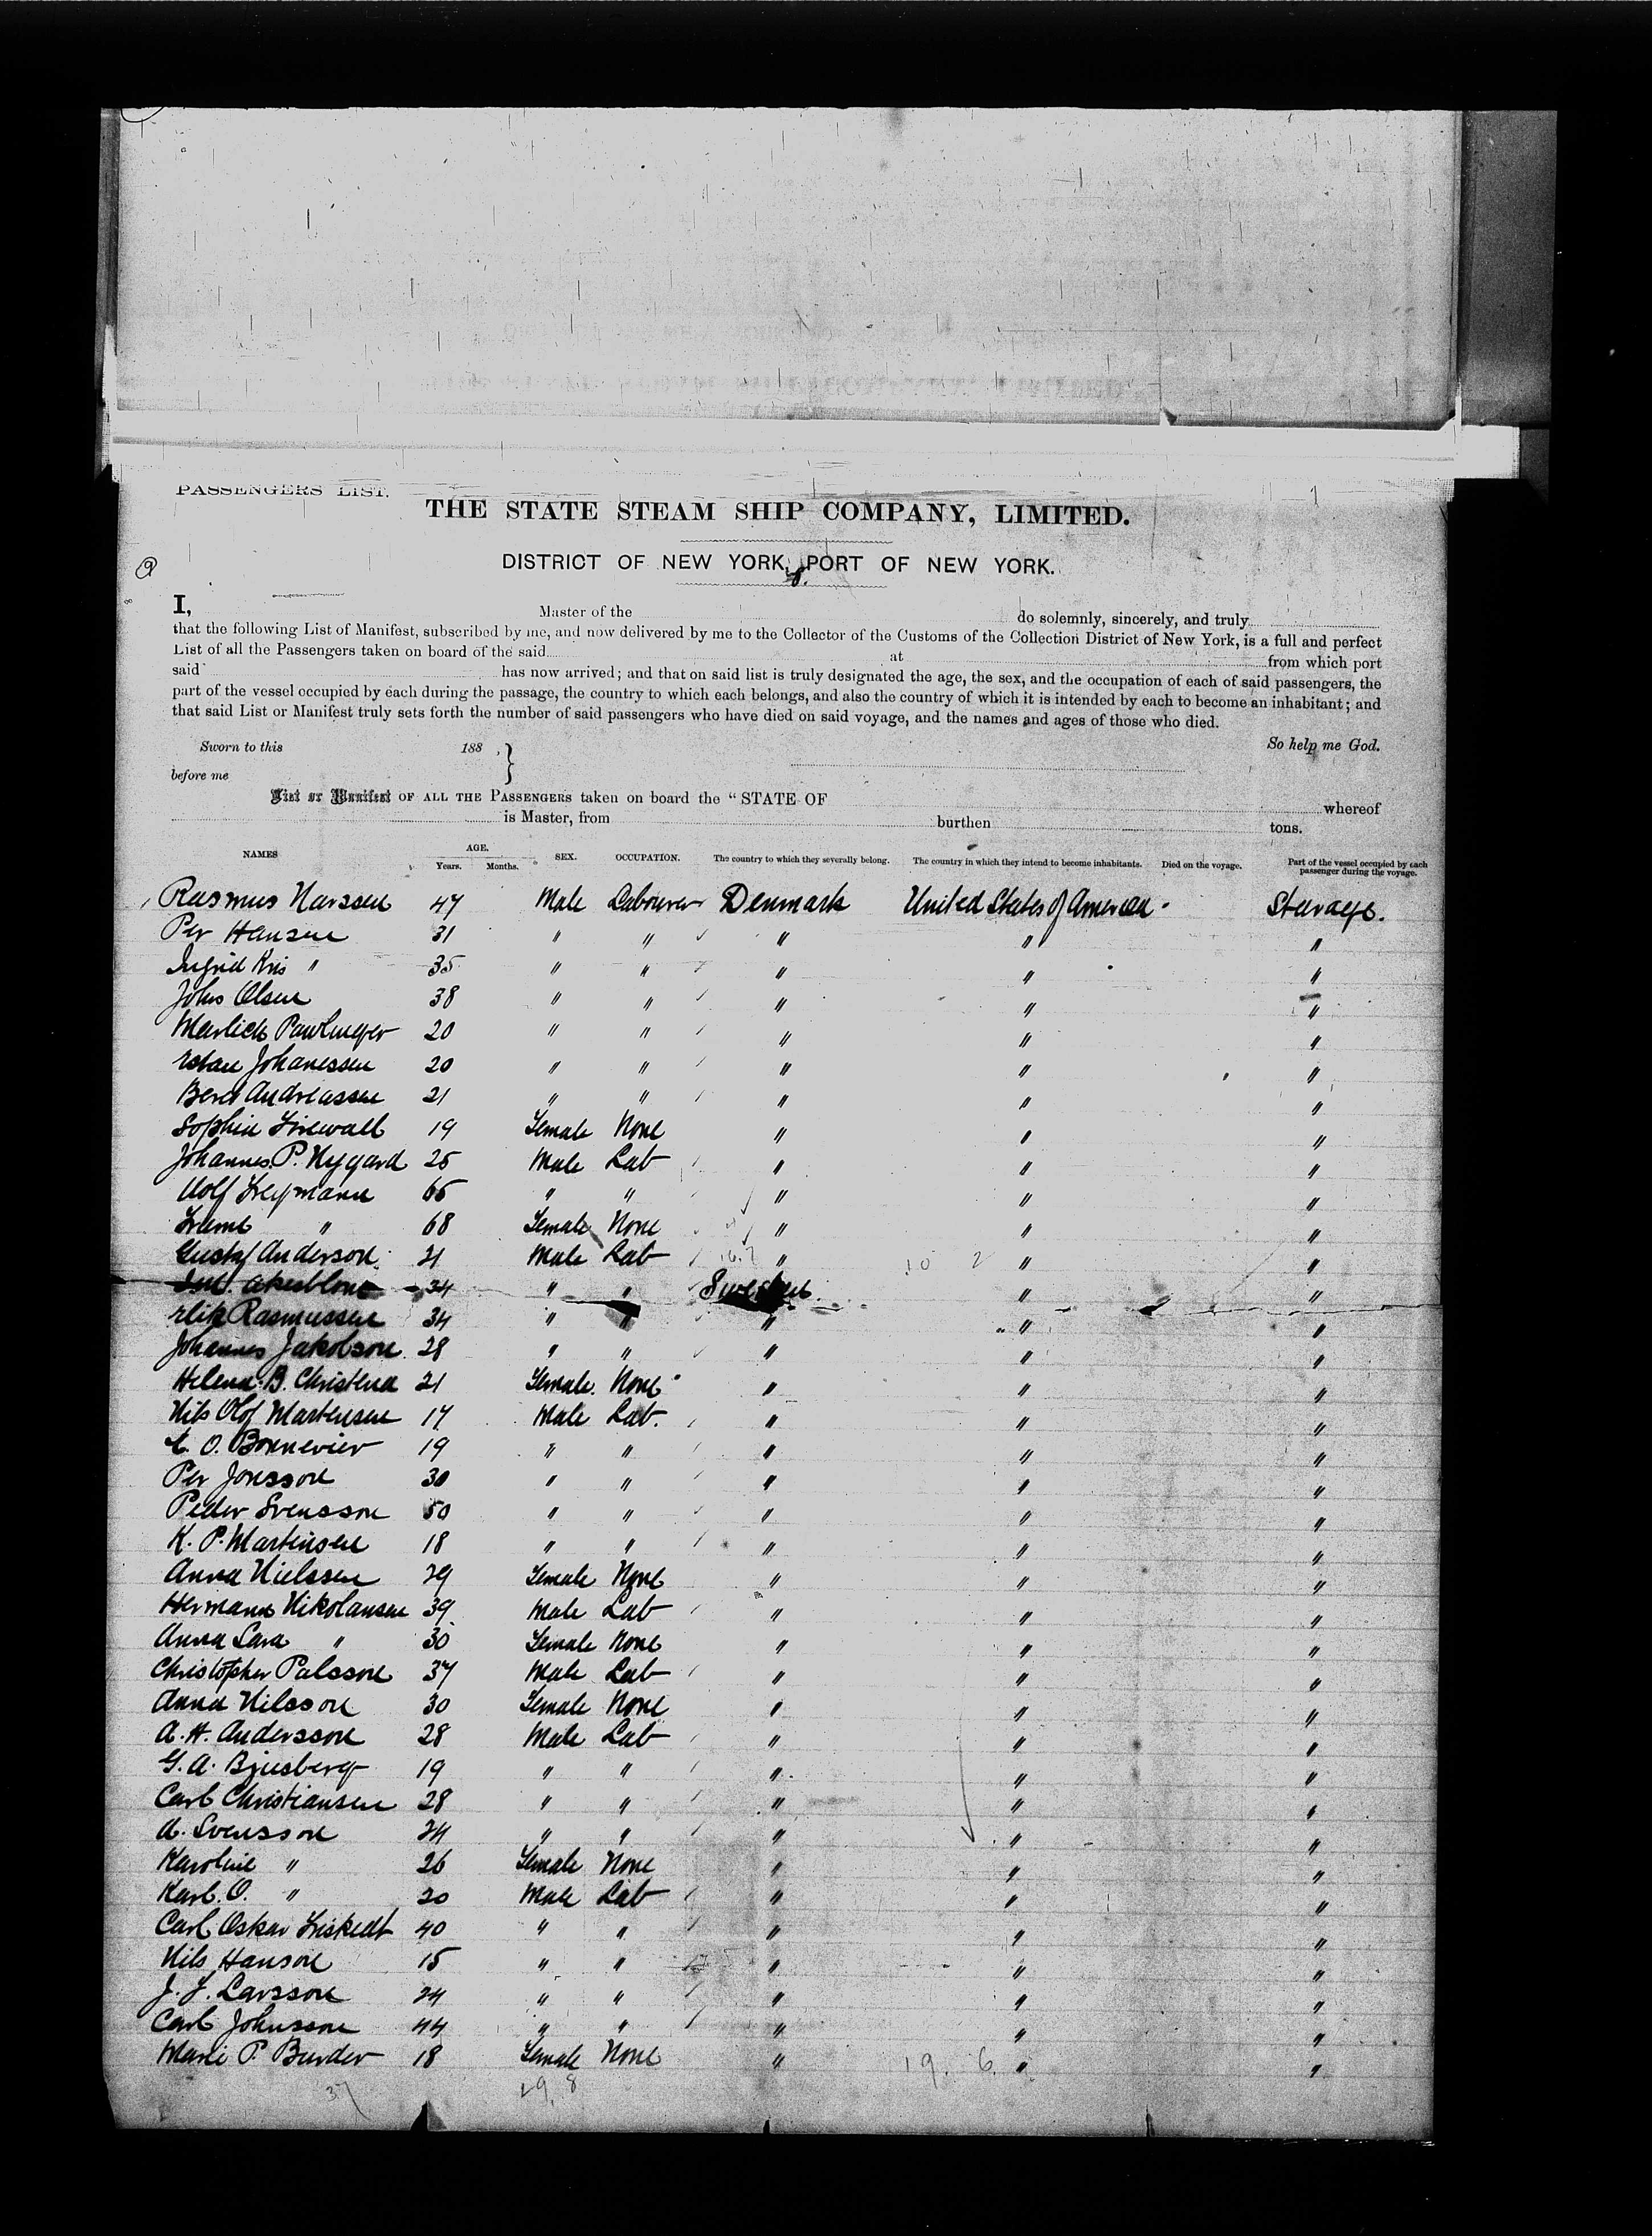 PASSENGERS LIST.
THE STATE STEAM SHIP COMPANY, LIMITED.
DISTRICT OF NEW YORK, PORT OF NEW YORK.
I, Master of the do solemnly, sincerely, and truly
that the following List of Manifest, subscribed by me, and now delivered by me to the Collector of the Customs of the Collection District of New York, is a full and perfect
List of all the Passengers taken on board of the said at from which port
said has now arrived; and that on said list is truly designated the age, the sex, and the occupation of each of said passengers, the
part of the vessel occupied by each during the passage, the country to which each belongs, and also the country of which it is intended by each to become an inhabitant; and
that said List or Manifest truly sets forth the number of said passengers who have died on said voyage, and the names and ages of those who died.
Sworn to this 188 , } So help me God.
before me
List or Manifest OF ALL THE PASSENGERS taken on board the "STATE OF whereof
is Master, from burthen tons.
NAMES AGE. Years. Months. SEX. OCCUPATION. The country to which they severally belong. The country in which they intend to become inhabitants. Died on the voyage. Part of the vessel occupied by each passenger during the voyage.
Rasmus Narssen 47 Male Labourer Denmark United States of America Steerage.
Per Hansen 31 " " " " "
Ingrid Kris " 35 " " " " "
Johs Olsen 38 " " " " "
20 " " " " "
Johanessen 20 " " " " "
Beret Andreassen 21 " " " " "
Sophia 19 Female None " " "
Johannes P. Nygard 25 Male Lab " " "
65 " " " " "
" 68 Female None " " "
Gustaf Anderson 21 Male Lab " " "
34 " " Sweden " "
Rasmussen 34 " " " " "
Johannes Jakobson 28 " " " " "
Helena B. Christena 21 Female None " " "
Nils Olof Martensen 17 Male Lab. " " "
O. Bonnevier 19 " " " " "
Per Jonsson 30 " " " " "
Peder Svensson 50 " " " " "
K. P. Martinsen 18 " " " " "
Anna Nielssen 29 Female None " " "
Hermann Nikolansen 39 Male Lab " " "
Anna Lara " 30 Female None " " "
Christopher Palsson 37 Male Lab " " "
Anna Nilsson 30 Female None " " "
A. H. Andersson 28 Male Lab " " "
G. A. 19 " " " " "
Carl Christiansen 28 " " " " "
A. Svensson 24 " " " " "
Karoline " 26 Female None " " "
Karl. O. " 20 Male Lab " " "
Carl Oskar 40 " " " " "
Nils Hanson 15 " " " " "
J. F. Larsson 24 " " " " "
Carl Johnsson 44 " " " " "
Marie P. Burder 18 Female None " " "
37 29. 8 19. 6.